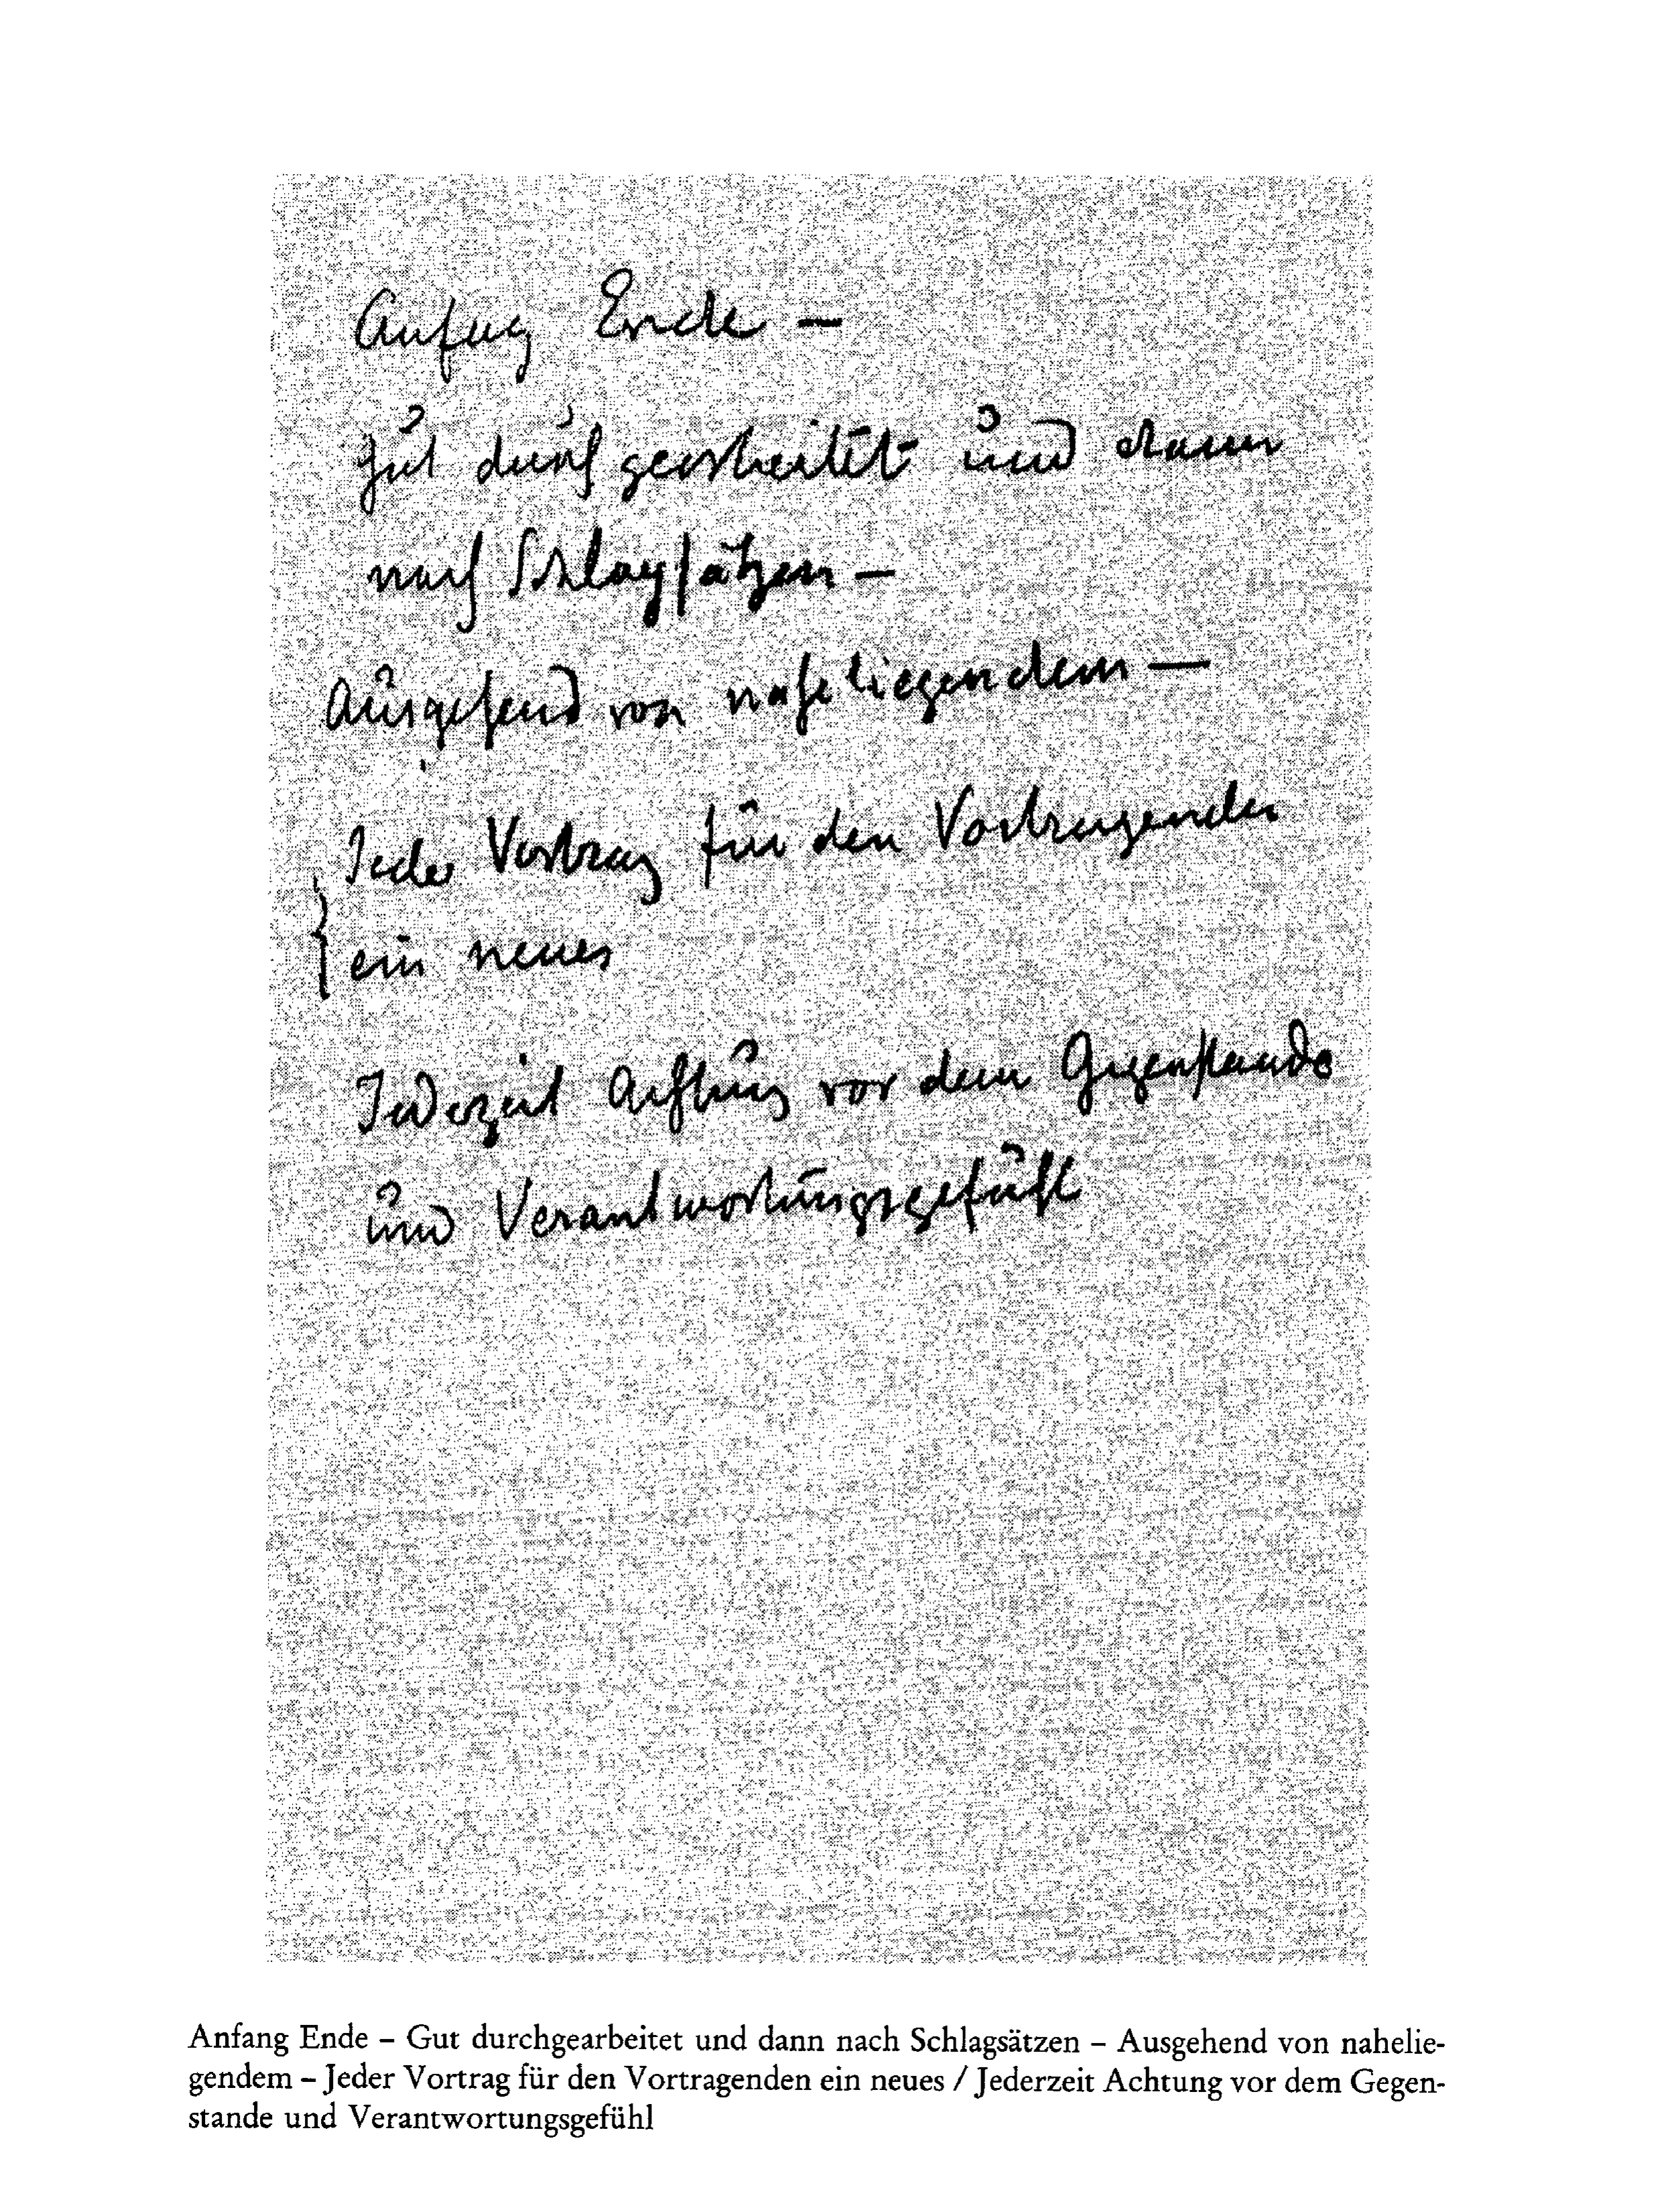 Anfang Ende –
gut durchgearbeitet und dann
nach Schlagsätzen –
Ausgehend von naheliegendem –
Jeder Vortrag für den Vortragenden
{ ein neues
Jederzeit Achtung vor dem Gegenstande
und Verantwortungsgefühl
Anfang Ende – Gut durchgearbeitet und dann nach Schlagsätzen – Ausgehend von nahelie-
gendem – Jeder Vortrag für den Vortragenden ein neues / Jederzeit Achtung vor dem Gegen-
stande und Verantwortungsgefühl